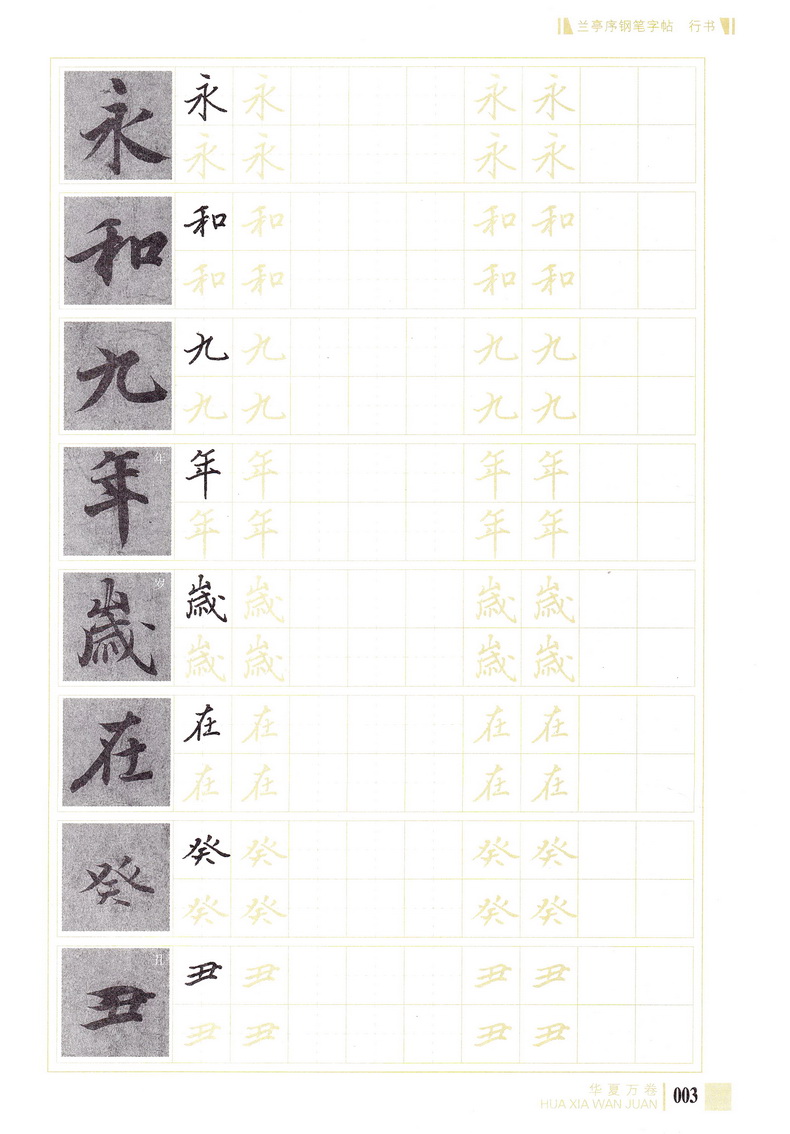 兰亭序钢笔字帖 行书
永 永 永 永 永
永 永 永 永
和 和 和 和 和
和 和 和 和
九 九 九 九 九
九 九 九 九
年 年 年 年 年 年
年 年 年 年
歳 岁 歳 歳 歳 歳
歳 歳 歳 歳
在 在 在 在 在
在 在 在 在
癸 癸 癸 癸 癸
癸 癸 癸 癸
丑 丑 丑 丑 丑 丑
丑 丑 丑 丑
华夏万卷
HUA XIA WAN JUAN
003